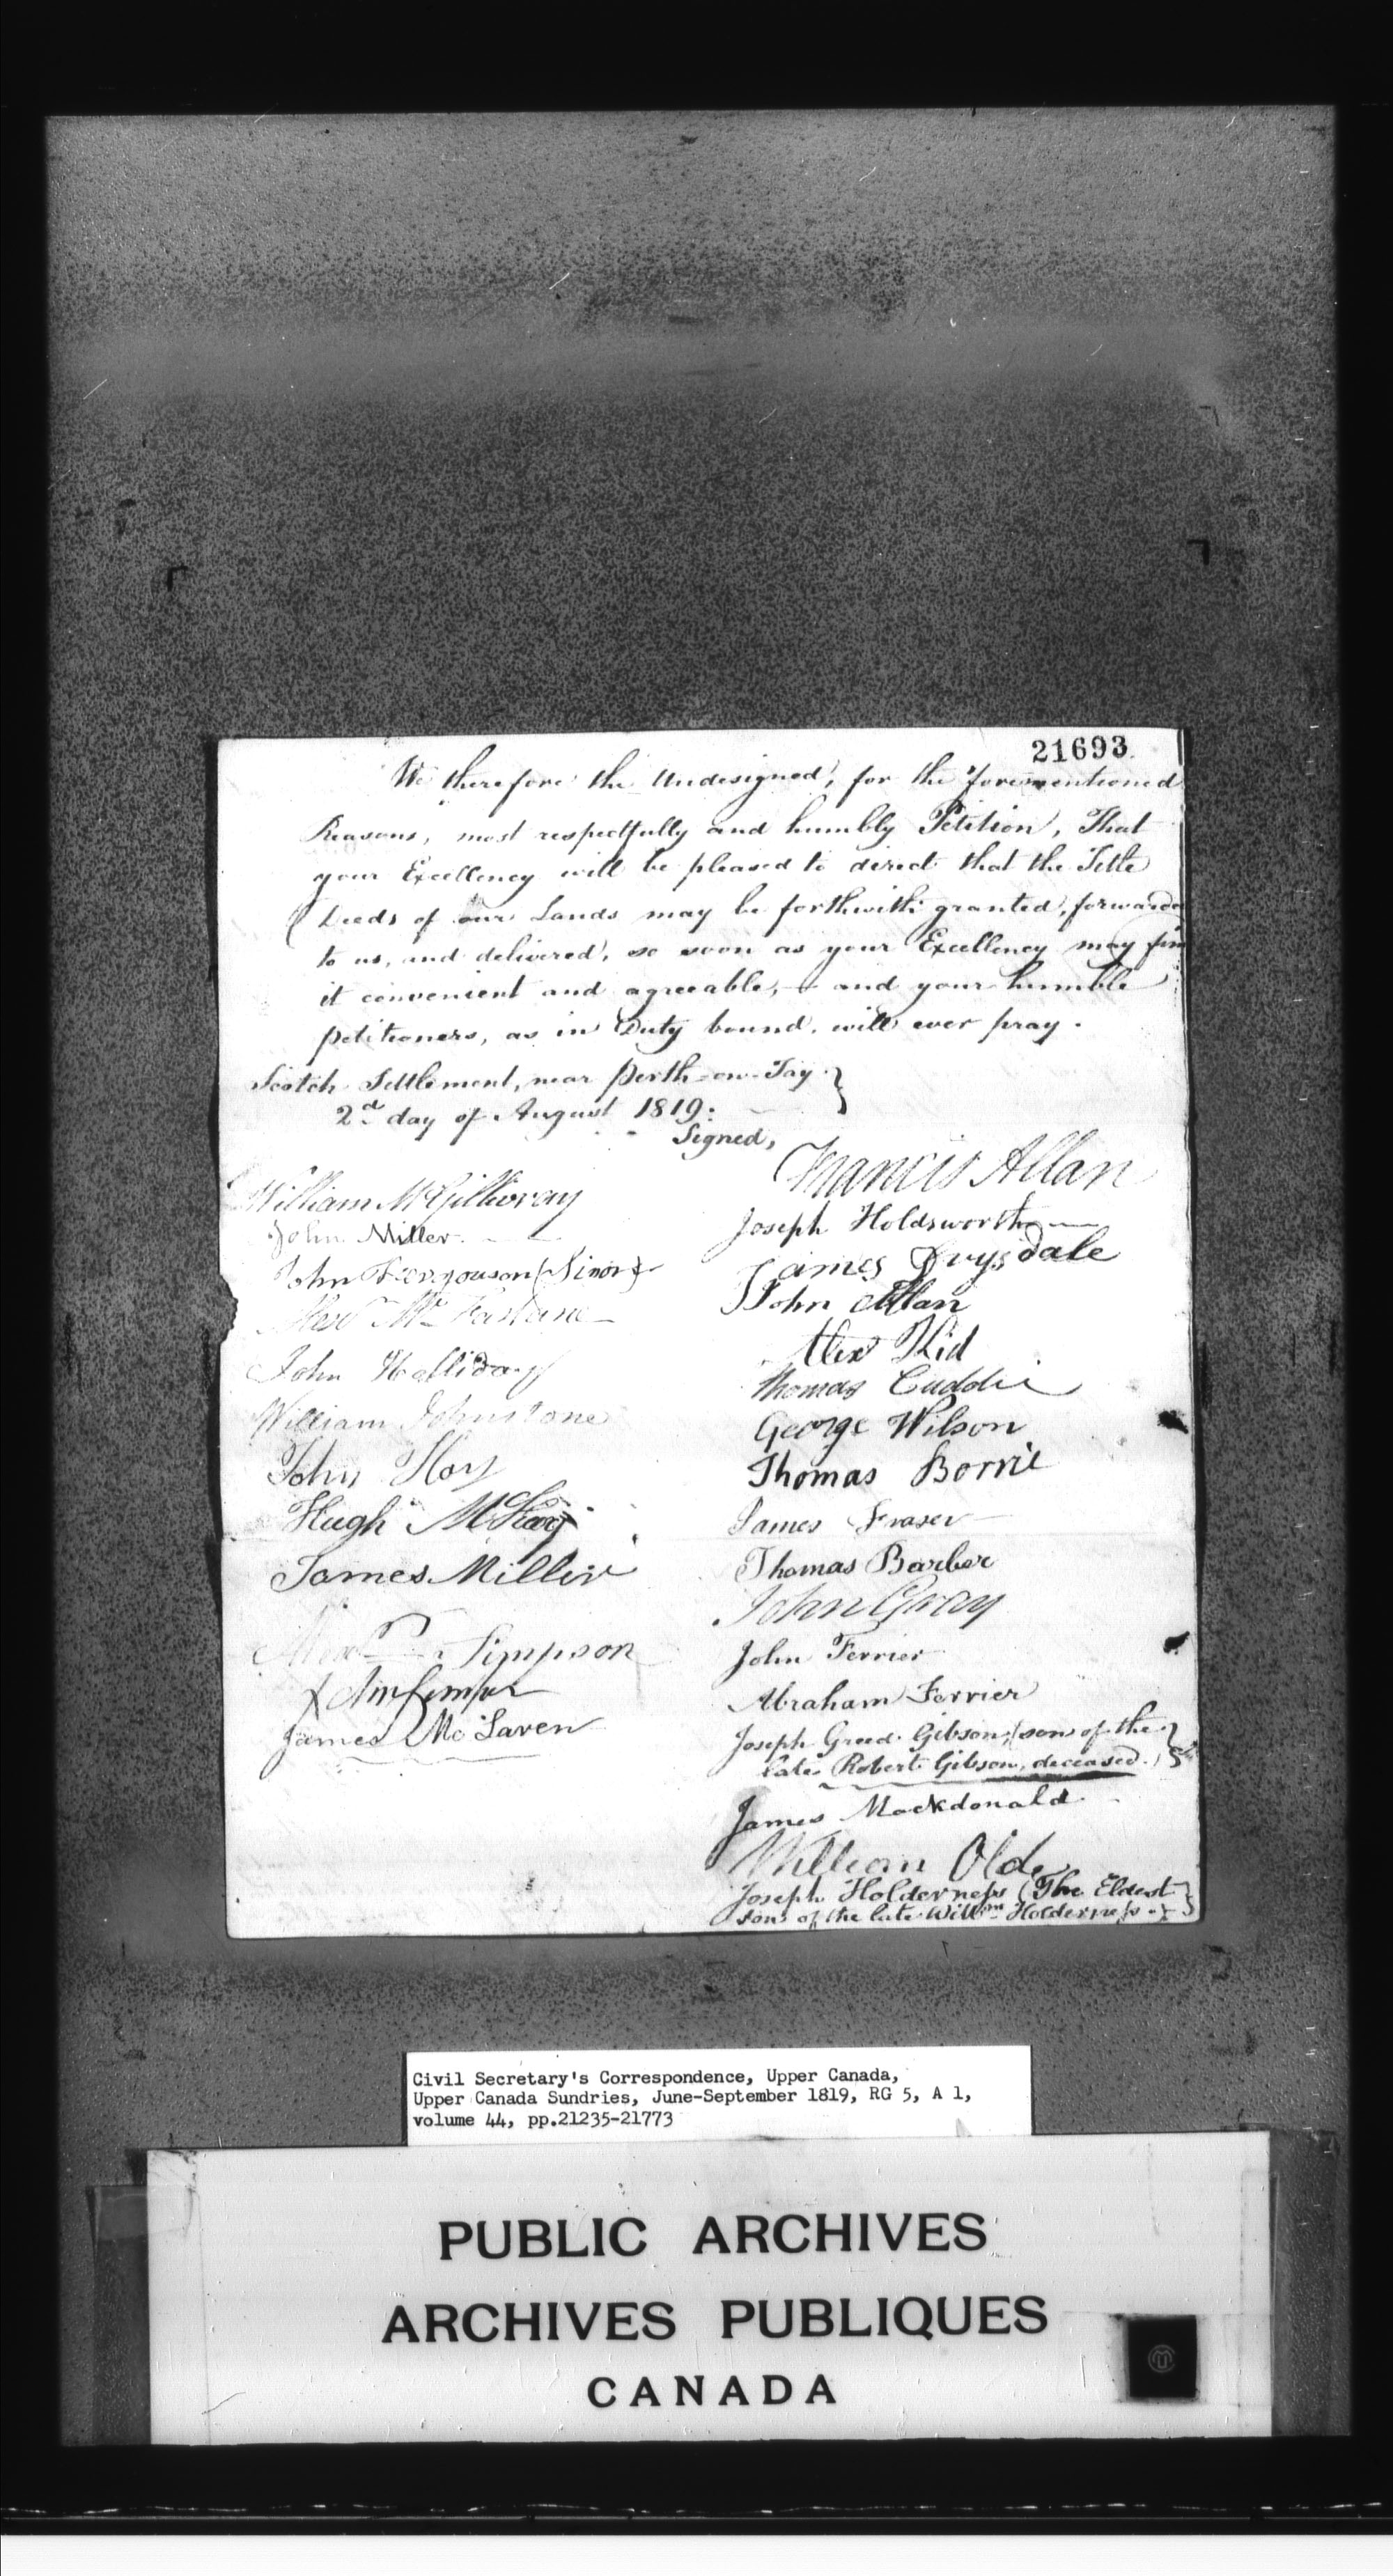 21693
We therefore the Undesigned, for the forementioned
Reasons, most respectfully and humbly Petition, That
your Excellency will be pleased to direct that the Title
Deeds of our Lands may be forthwith granted, forwarded
to us, and delivered, so soon as your Excellency may
it convenient and agreeable, — and your humble
petitioners, as in Duty bound, will ever pray.
Scotch Settlement, near Perth-on-Tay }
2d day of August 1819:
Signed,
William McGillivray
John Miller
John Fergouson (Sinor)
Mc Farlane
John Halliday
William Johnstone
John Hay
Hugh McKay
James Miller
Alexr Simpson
James McLaren
Francis Allan
Joseph Holdsworth
James Drysdale
John Allan
Alexr Kid
Thomas Cuddie
George Wilson
Thomas Borrie
James Fraser
Thomas Barber
John Gray
John Ferrier
Abraham Ferrier
Joseph Greed Gibson, (son of the
late Robert Gibson, deceased.)
James Mackdonald
William Olde
Joseph Holderness (The Eldest
son of the late Willm Holderness.)
Civil Secretary's Correspondence, Upper Canada,
Upper Canada Sundries, June-September 1819, RG 5, A 1,
volume 44, pp.21235-21773
PUBLIC ARCHIVES
ARCHIVES PUBLIQUES
CANADA